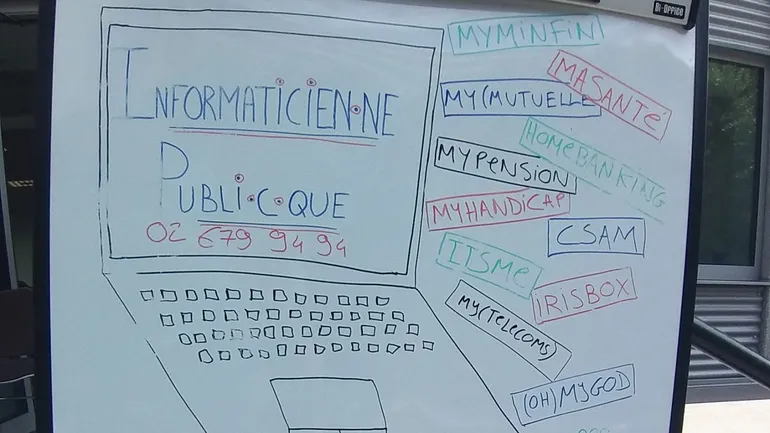 Bi-OFFiCE
INFORMATICIEN·NE
PUBLI·C·QUE
02 679 94 94
MYMiNFiN
MASANTÉ
MY(MUTUELLE
HOMEBANKING
MYPENSION
MYHANDiCAP
CSAM
ITSME
iRISBOX
MY(TELECOMS)
(OH)MYGOD